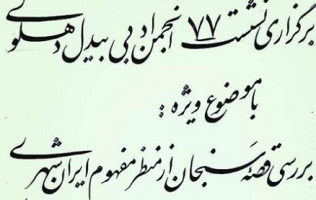 برگزاری نشست ۷۷ انجمن ادبی بیدل دهلوی
با موضوع ویژه :
بررسی قصهٔ سنجان از منظر مفهوم ایران‌شهری